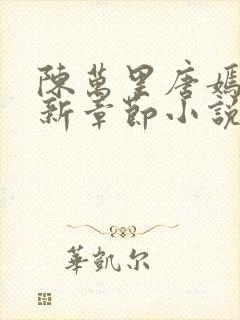 陳萬里唐嫣
新章節小說
華凱尔